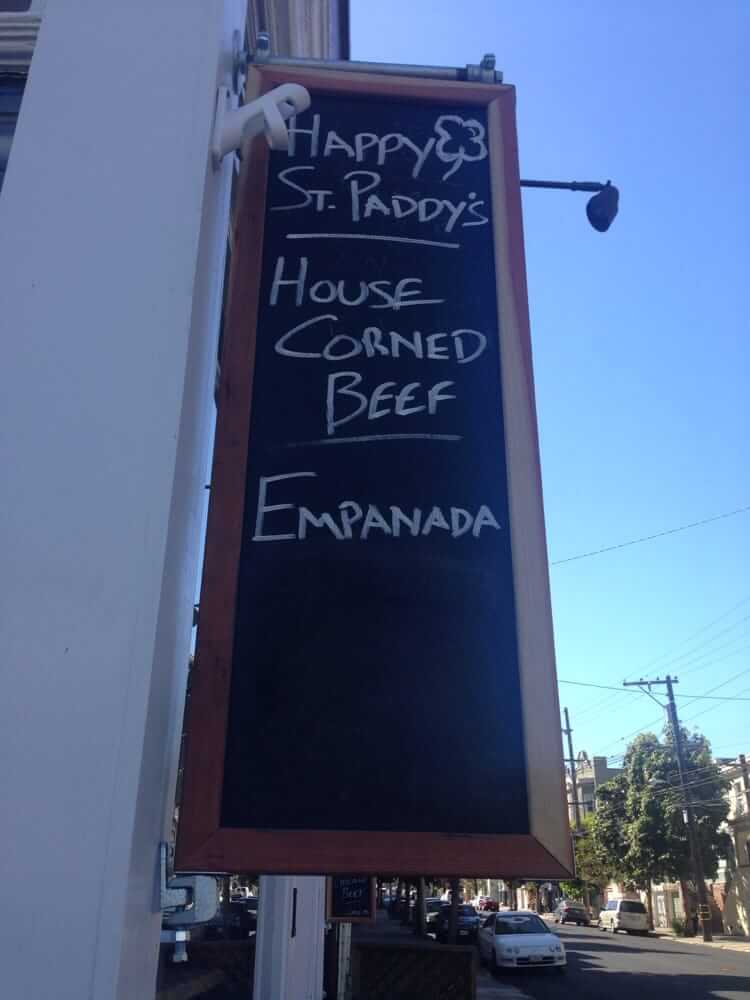 HAPPY
ST. PADDY'S
HOUSE
CORNED
BEEF
EMPANADA
BEEF